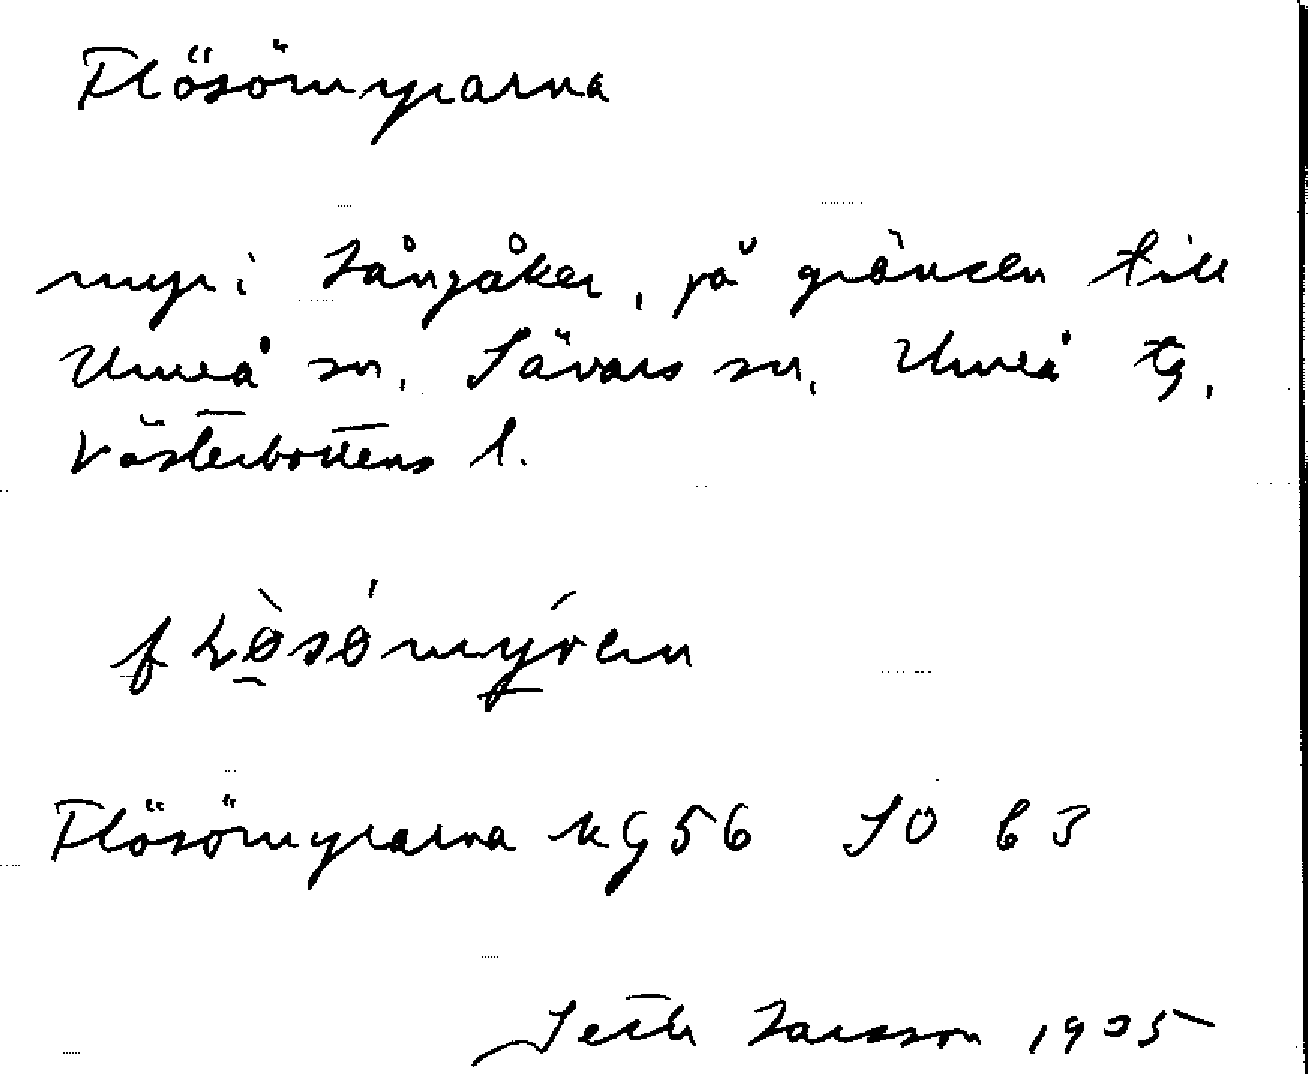 Flösömyrarna
myr i Långåker, på gränsen till
Umeå sn, Sävars sn, Umeå tg,
Västerbottens l.
Flösömyrarna kg 56 SO b3
Seth Larsson 1905